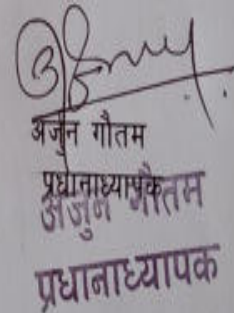 अर्जुन गौतम
प्रधानाध्यापक
अर्जुन गौतम
प्रधानाध्यापक